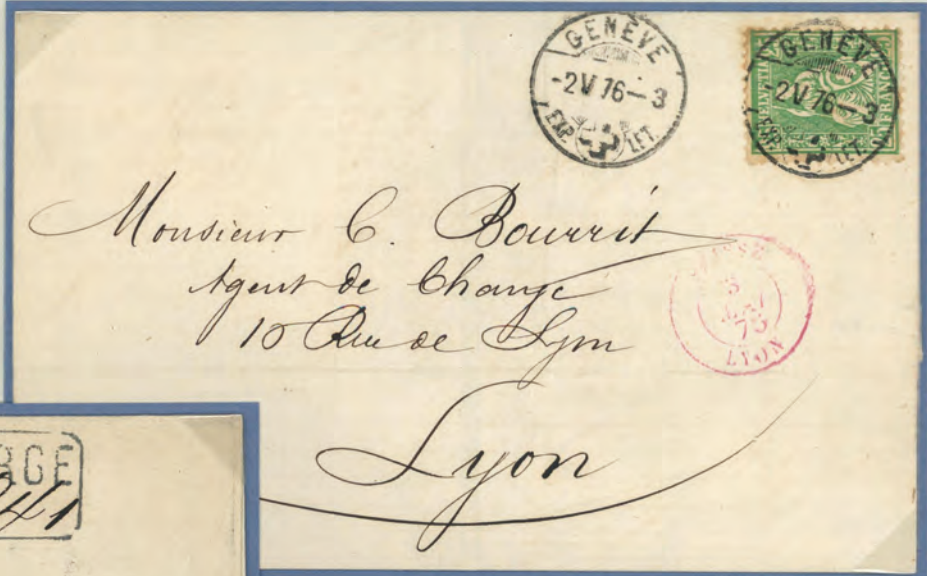 GENÈVE
-2 V 76-3
EXP. LET.
HELVETIA
FRANCO
GENÈVE
-2 V 76-3
EXP. LET.
Monsieur C. Bourrit
Agent de Change
10 Rue de Lyon
Lyon
SUISSE
3
MAI
LYON
RGE
241